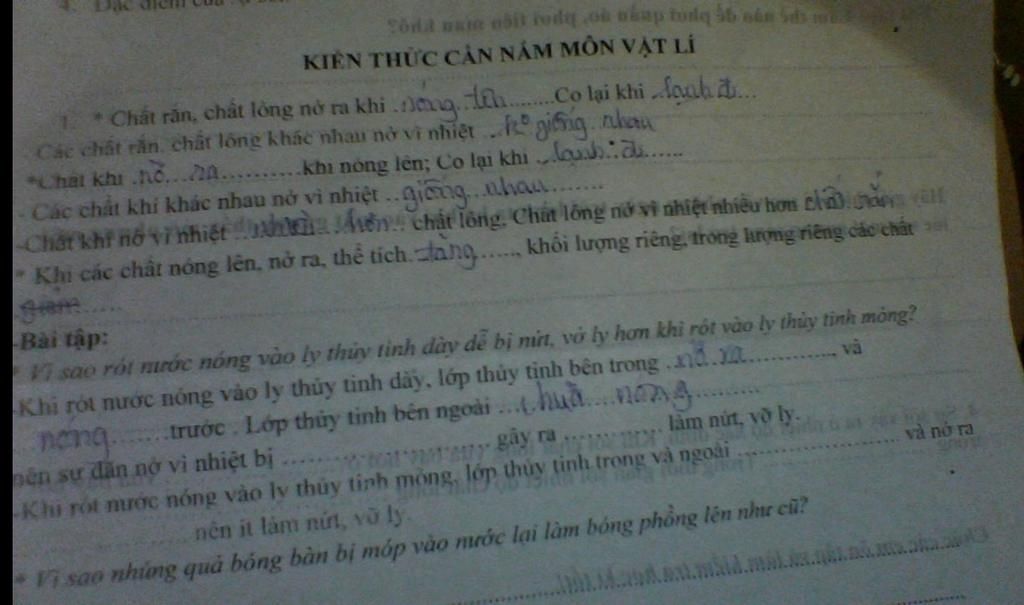 4. Đặc điểm của
KIẾN THỨC CẦN NẮM MÔN VẬT LÍ
1. * Chất rắn, chất lỏng nở ra khi .nóng lên........Co lại khi ..lạnh đi...
- Các chất rắn, chất lỏng khác nhau nở vì nhiệt ...ko giống nhau
*Chất khí .nở...ra...........khi nóng lên; Co lại khi ..lạnh đi......
- Các chất khí khác nhau nở vì nhiệt ..giống..nhau........
-Chất khí nở vì nhiệt ..nhiều..hơn.. chất lỏng, Chất lỏng nở vì nhiệt nhiều hơn chất rắn
* Khi các chất nóng lên, nở ra, thể tích.tăng......, khối lượng riêng, trọng lượng riêng các chất
giảm.....
-Bài tập:
* Vì sao rót nước nóng vào ly thủy tinh dày dễ bị nứt, vỡ ly hơn khi rót vào ly thủy tinh mỏng?
-Khi rót nước nóng vào ly thủy tinh dày, lớp thủy tinh bên trong .nở.ra..............., và
nóng........trước . Lớp thủy tinh bên ngoài ...chưa....nóng..........
nên sự dãn nở vì nhiệt bị .......................... gây ra ............. làm nứt, vỡ ly.
-Khi rót nước nóng vào ly thủy tinh mỏng, lớp thủy tinh trong và ngoài ..................... và nở ra
...................... nên ít làm nứt, vỡ ly.
* Vì sao những quả bóng bàn bị móp vào nước lại làm bóng phồng lên như cũ?